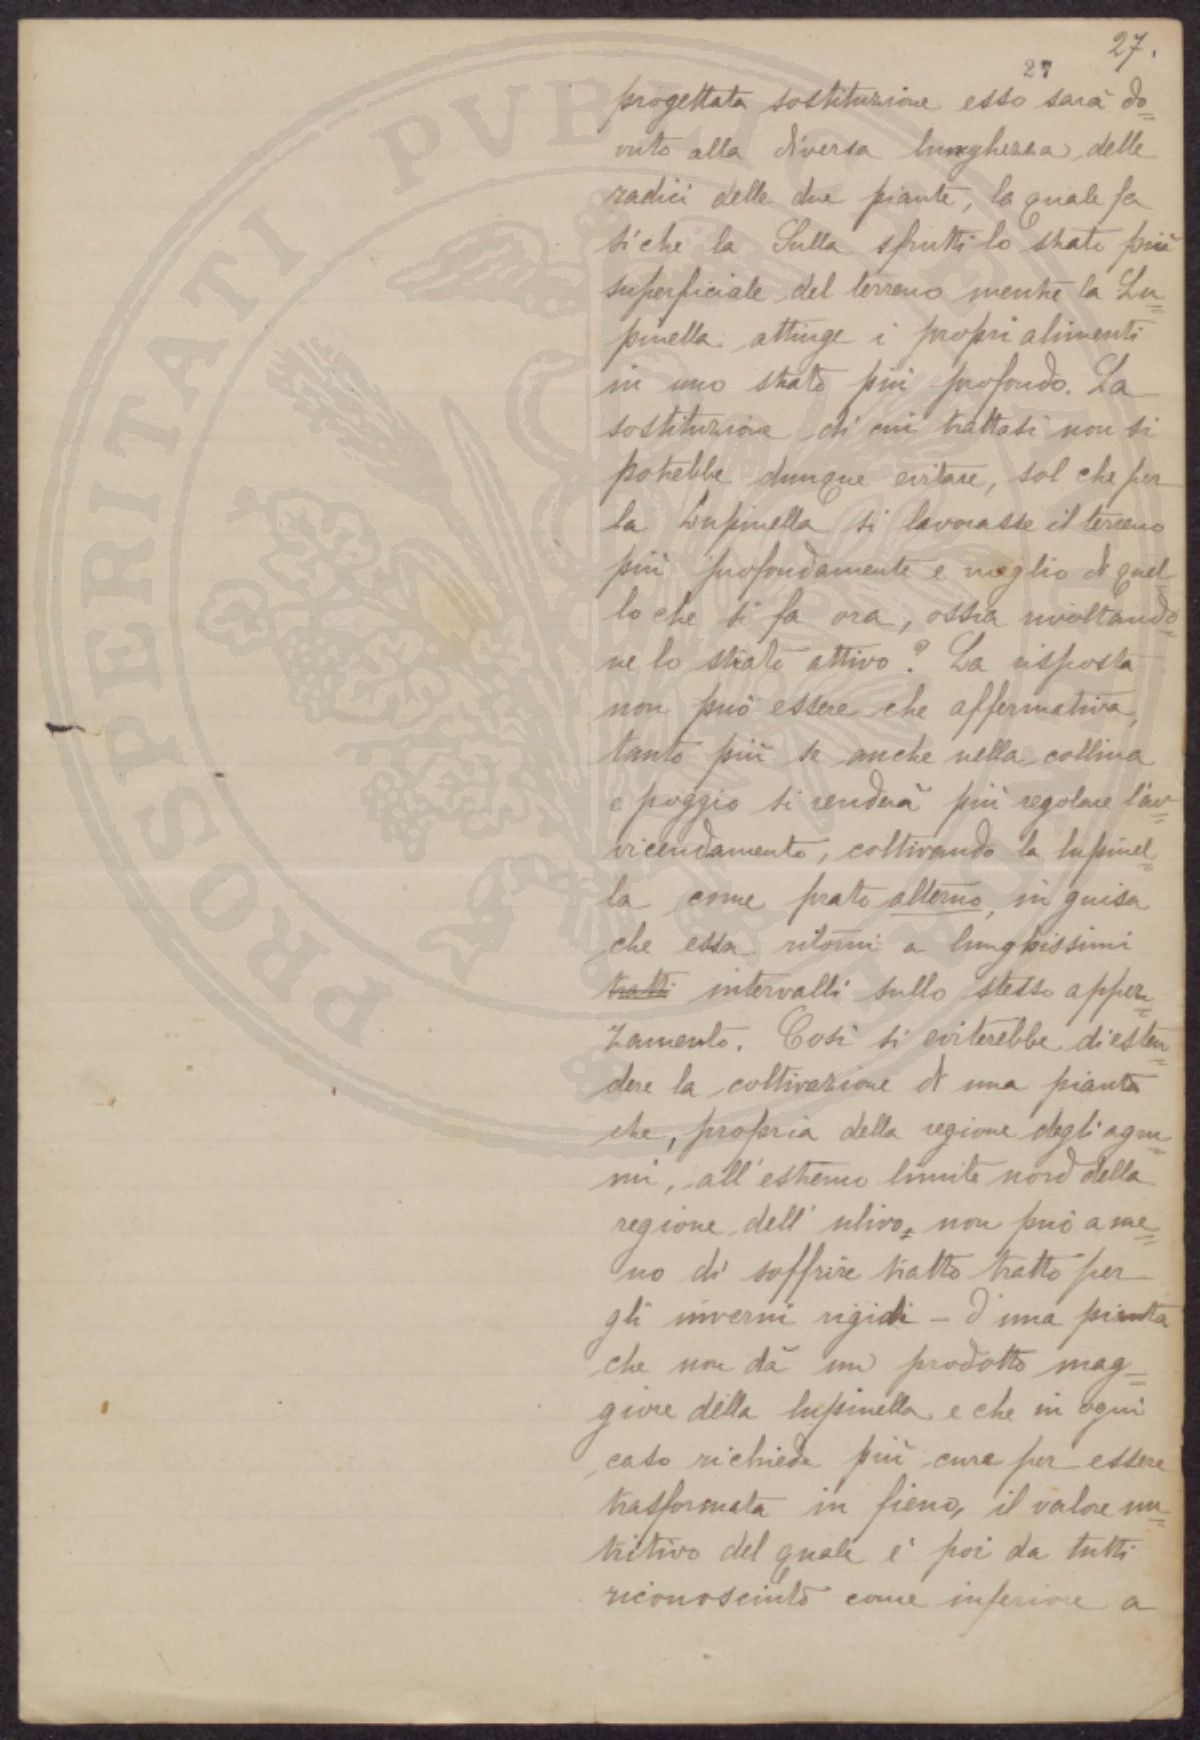 27.
27
progettata sostituzione esso sarà do=
vuto alla diversa lunghezza delle
radici delle due piante, la quale fa
si che la Sulla sfrutti lo strato più
superficiale del terreno mentre la Lu=
pinella attinge i propri alimenti
in uno strato più profondo. La
sostituzione di cui trattasi non si
potrebbe dunque evitare, sol che per
la Lupinella si lavorasse il terreno
più profondamente e meglio di quel=
lo che si fa ora, ossia rivoltando=
ne lo strato attivo? La risposta
non può essere che affermativa,
tanto più se anche nella collina
e poggio si renderà più regolare l'av=
vicendamento, coltivando la lupinel=
la come prato alterno, in guisa
che essa ritorni a lunghissimi
tratti intervalli sullo stesso appez=
zamento. Così si eviterebbe di esten=
dere la coltivazione di una pianta
che, propria della regione degli agru=
mi, all'estremo limite nord della
regione dell'ulivo, non può a me=
no di soffrire tratto tratto per
gli inverni rigidi – d'una pianta
che non dà un prodotto mag=
giore della lupinella e che in ogni
caso richiede più cure per essere
trasformata in fieno, il valore nu=
tritivo del quale è poi da tutti
riconosciuto come inferiore a
PROSPERITATI PVBLICAE